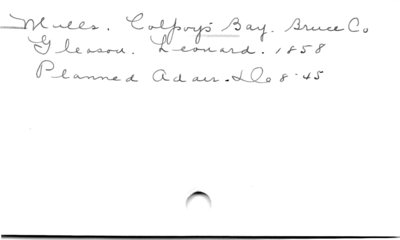 Mills. Colpoy's Bay. Bruce Co
Gleason. Leonard. 1858
Planned Adair. 8-45